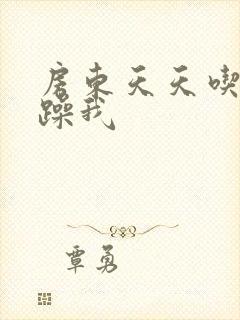 房东天天喫
躁我
覃勇